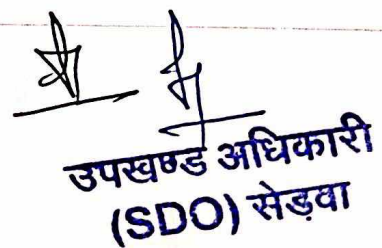 उपखण्ड अधिकारी
(SDO) सेड़वा